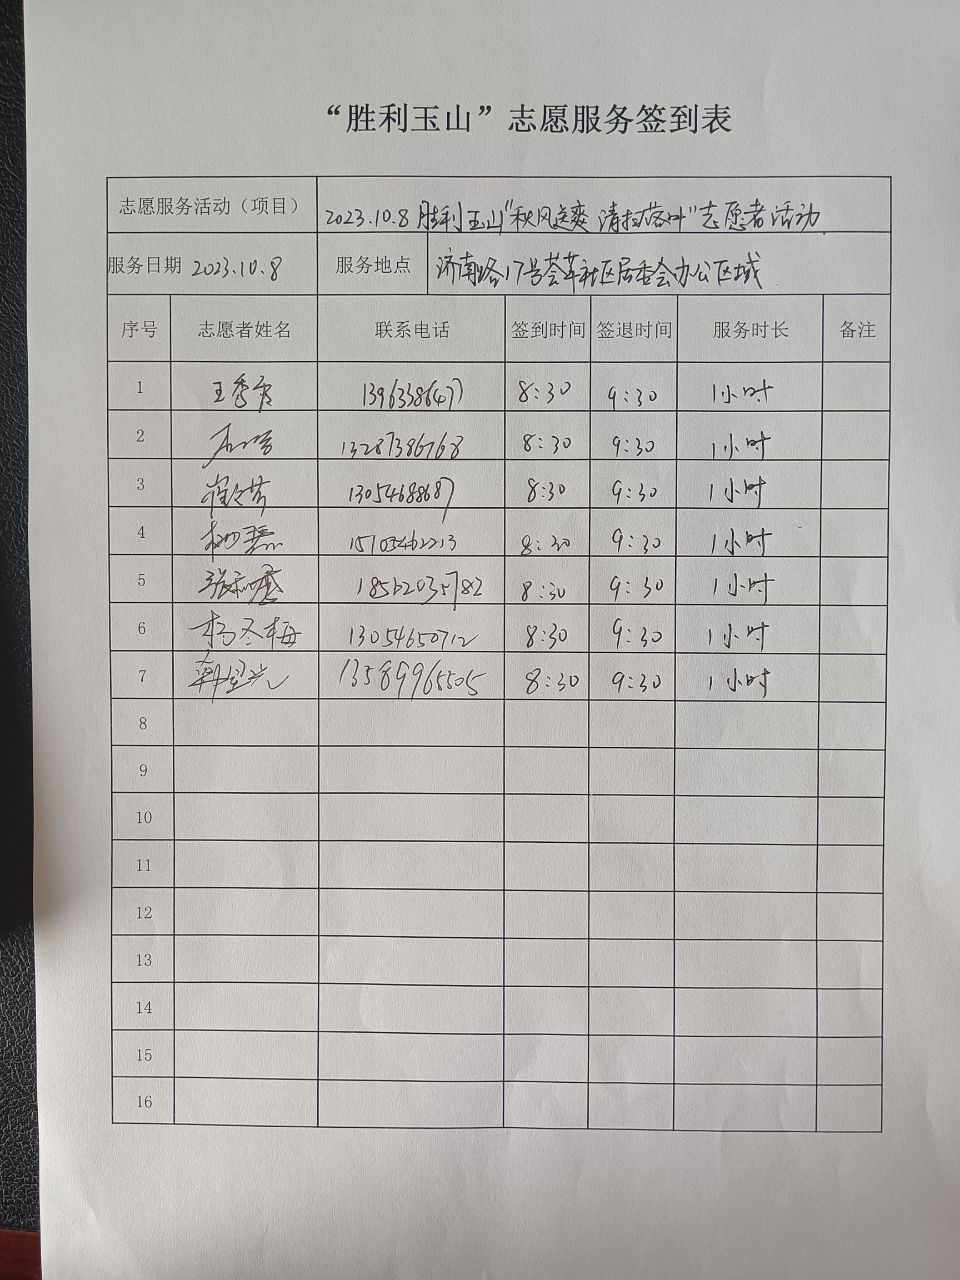 “胜利玉山”志愿服务签到表
志愿服务活动（项目） 2023.10.8 胜利玉山“秋风送爽 清扫落叶”志愿者活动
服务日期 2023.10.8 服务地点 济南路17号荟萃社区居委会办公区域
序号 志愿者姓名 联系电话 签到时间 签退时间 服务时长 备注
1 王秀 13963386477 8:30 9:30 1小时
2 13287386768 8:30 9:30 1小时
3 崔 13054688687 8:30 9:30 1小时
4 15105462213 8:30 9:30 1小时
5 张 18562035782 8:30 9:30 1小时
6 杨冬梅 13054650712 8:30 9:30 1小时
7 韩 13589965505 8:30 9:30 1小时
8
9
10
11
12
13
14
15
16